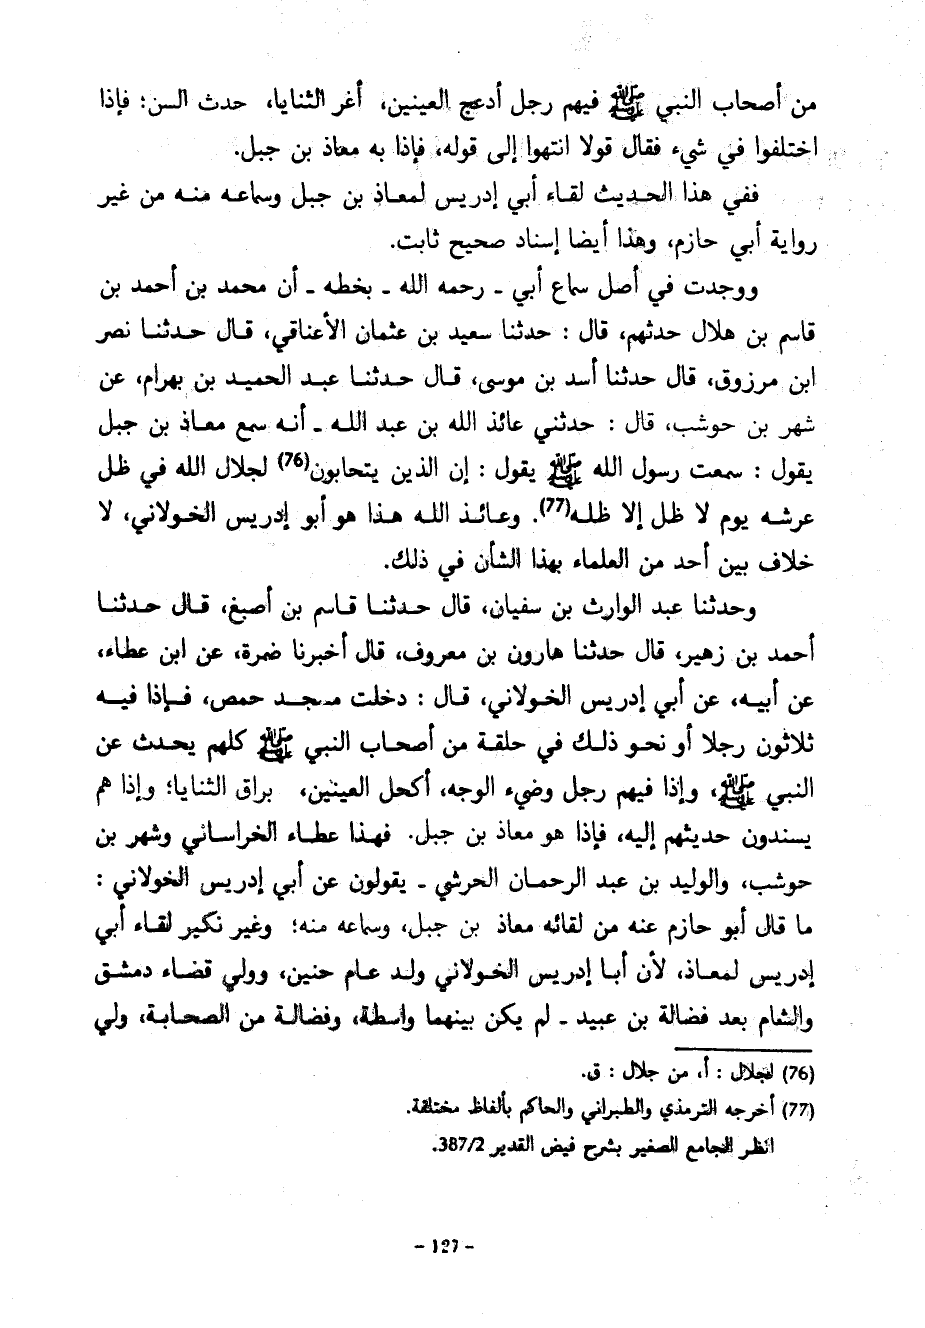 من أصحاب النبي ﷺ فيهم رجل أدعج العينين، أغر الثنايا، حدث السن؛ فإذا
اختلفوا في شيء فقال قولا انتهوا إلى قوله، فإذا به معاذ بن جبل.
ففي هذا الحديث لقاء أبي إدريس لمعاذ بن جبل وسماعه منه من غير
رواية أبي حازم، وهذا أيضا إسناد صحيح ثابت.
ووجدت في أصل سماع أبي ـ رحمه الله ـ بخطه ـ أن محمد بن أحمد بن
قاسم بن هلال حدثهم، قال : حدثنا سعيد بن عثمان الأعناقي، قال حدثنا نصر
ابن مرزوق، قال حدثنا أسد بن موسى، قال حدثنا عبد الحميد بن بهرام، عن
شهر بن حوشب، قال : حدثني عائذ الله بن عبد الله ـ أنه سمع معاذ بن جبل
يقول : سمعت رسول الله ﷺ يقول : إن الذين يتحابون(76) لجلال الله في ظل
عرشه يوم لا ظل إلا ظله(77). وعائذ الله هذا هو أبو إدريس الخولاني، لا
خلاف بين أحد من العلماء بهذا الشأن في ذلك.
وحدثنا عبد الوارث بن سفيان، قال حدثنا قاسم بن أصبغ، قال حدثنا
أحمد بن زهير، قال حدثنا هارون بن معروف، قال أخبرنا ضمرة، عن ابن عطاء،
عن أبيه، عن أبي إدريس الخولاني، قال : دخلت مسجد حمص، فإذا فيه
ثلاثون رجلا أو نحو ذلك في حلقة من أصحاب النبي ﷺ كلهم يحدث عن
النبي ﷺ، وإذا فيهم رجل وضيء الوجه، أكحل العينين، براق الثنايا؛ وإذا هم
يسندون حديثهم إليه، فإذا هو معاذ بن جبل. فهذا عطاء الخراساني وشهر بن
حوشب، والوليد بن عبد الرحمان الحرشي ـ يقولون عن أبي إدريس الخولاني :
ما قال أبو حازم عنه من لقائه معاذ بن جبل، وسماعه منه؛ وغير نكير لقاء أبي
إدريس لمعاذ، لأن أبا إدريس الخولاني ولد عام حنين، وولي قضاء دمشق
والشام بعد فضالة بن عبيد ـ لم يكن بينهما واسطة، وفضالة من الصحابة، ولي
(76) لجلال : أ، من جلال : ق.
(77) أخرجه الترمذي والطبراني والحاكم بألفاظ مختلفة.
انظر الجامع الصغير بشرح فيض القدير 387/2.
- 127 -